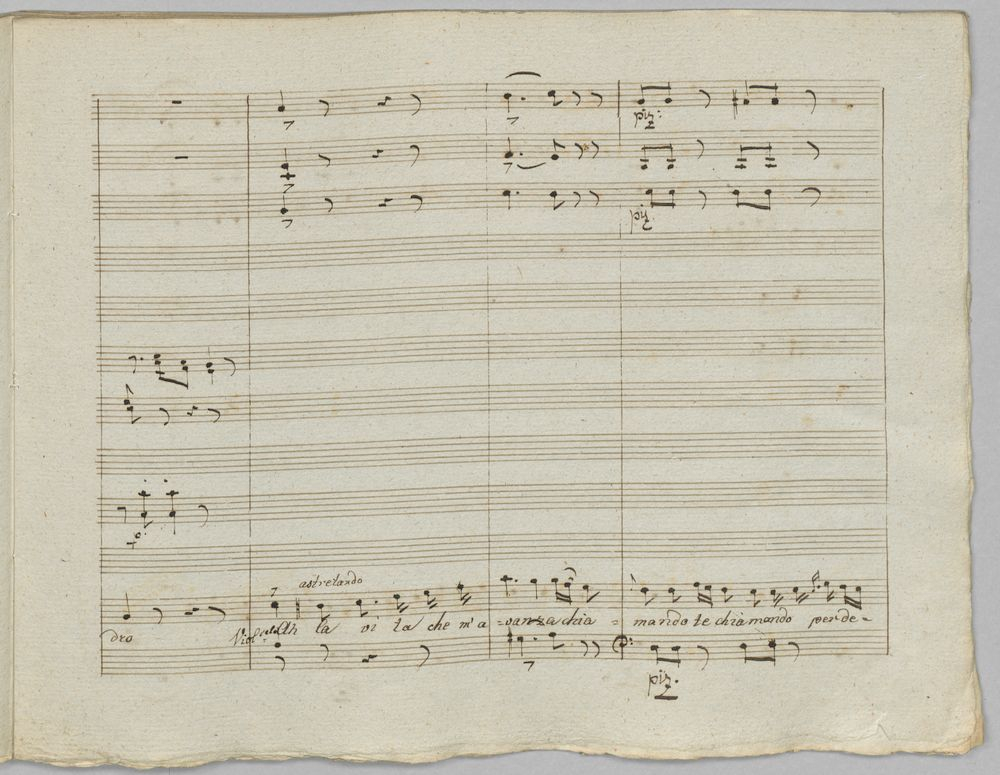 piz:
piz
astretando
dro Viol.celo Ah la vi ta che m'a = vanza chia = mando te chiamando perde =
piz.